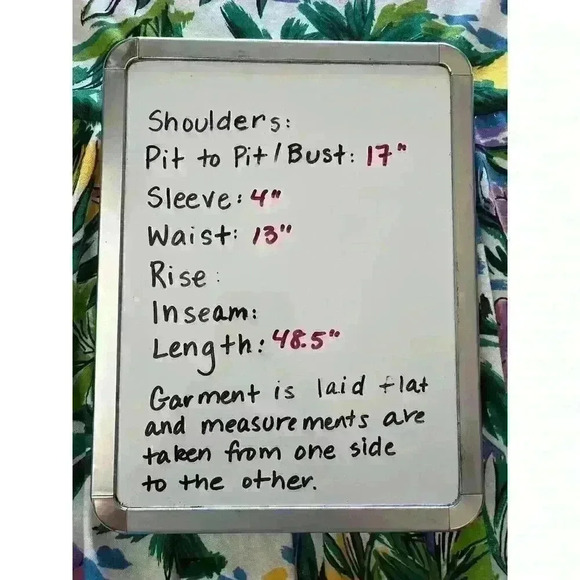 Shoulders:
Pit to Pit/Bust: 17"
Sleeve: 4"
Waist: 13"
Rise:
Inseam:
Length: 48.5"
Garment is laid flat
and measurements are
taken from one side
to the other.